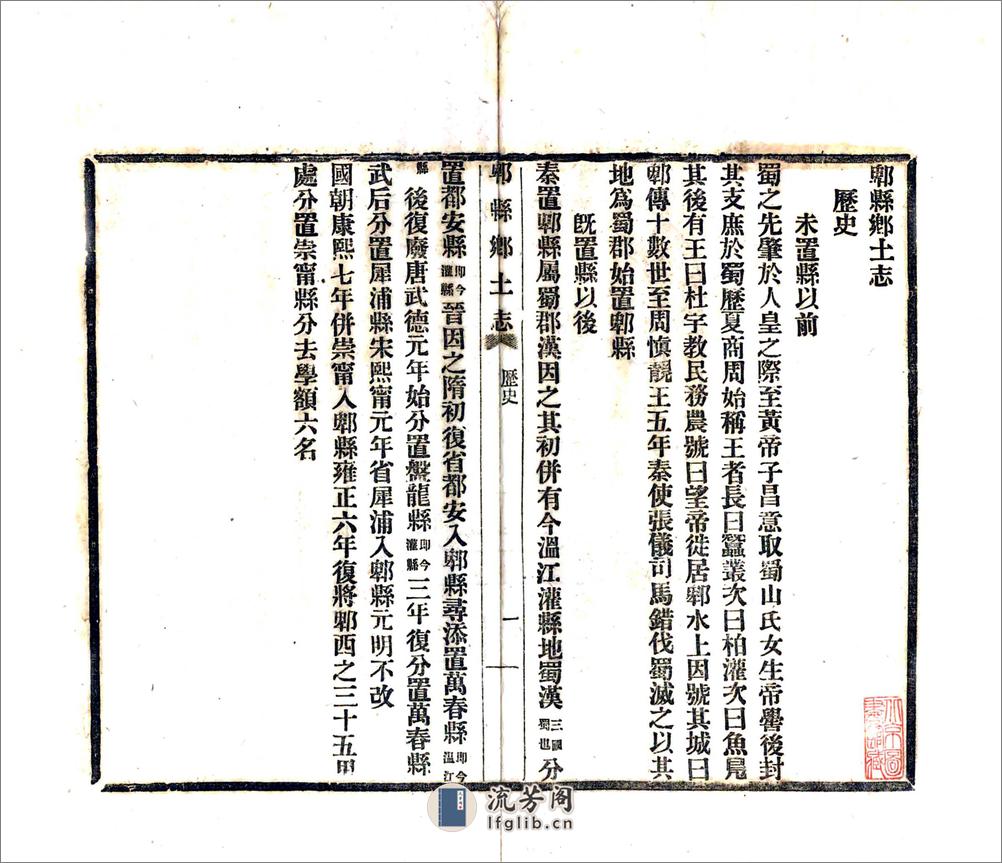 郫縣鄉土志
歷史
未置縣以前
蜀之先肇於人皇之際至黃帝子昌意取蜀山氏女生帝嚳後封
其支庶於蜀歷夏商周始稱王者長曰蠶叢次曰柏灌次曰魚鳧
其後有王曰杜宇教民務農號曰望帝徙居郫水上因號其城曰
郫傳十數世至周慎靚王五年秦使張儀司馬錯伐蜀滅之以其
地爲蜀郡始置郫縣
旣置縣以後
秦置郫縣屬蜀郡漢因之其初併有今溫江灌縣地蜀漢三國蜀也分
郫縣鄉土志 歷史 一
置都安縣即今灌縣晉因之隋初復省都安入郫縣尋添置萬春縣即今溫江
縣後復廢唐武德元年始分置盤龍縣即今灌縣三年復分置萬春縣
武后分置犀浦縣宋熙甯元年省犀浦入郫縣元明不改
國朝康熙七年併崇甯入郫縣雍正六年復將郫西之三十五甲
處分置崇甯縣分去學額六名
流芳阁
lfglib.cn